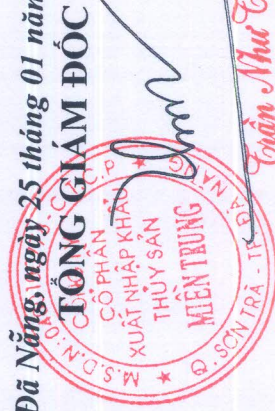 Đà Nẵng, ngày 25 tháng 01 năm
TỔNG GIÁM ĐỐC
CỔ PHẦN
XUẤT NHẬP KHẨU
THỦY SẢN
MIỀN TRUNG
Q. SƠN TRÀ - TP. ĐÀ NẴNG
Trần Như